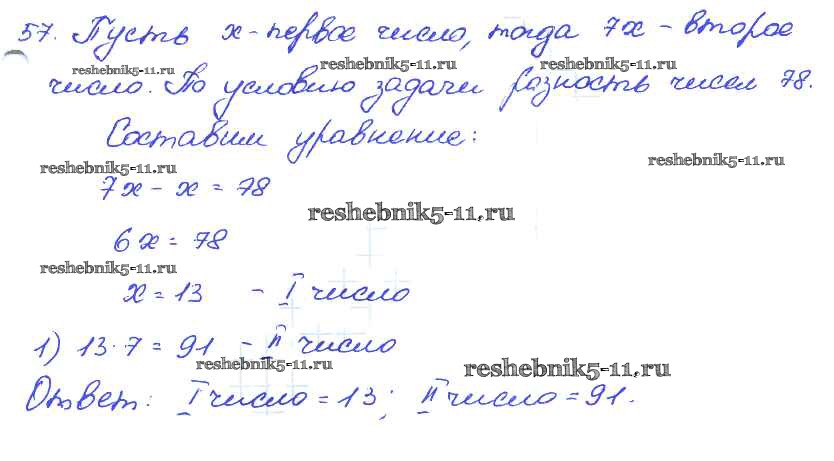 57. Пусть x - первое число, тогда 7x - второе
reshebnik5-11.ru reshebnik5-11.ru reshebnik5-11.ru
число. По условию задачи разность чисел 78.
Составим уравнение:
reshebnik5-11.ru reshebnik5-11.ru
7x - x = 78
reshebnik5-11.ru
6x = 78
reshebnik5-11.ru
x = 13 - I число
1) 13 · 7 = 91 - II число
reshebnik5-11.ru reshebnik5-11.ru
Ответ: I число = 13; II число = 91.